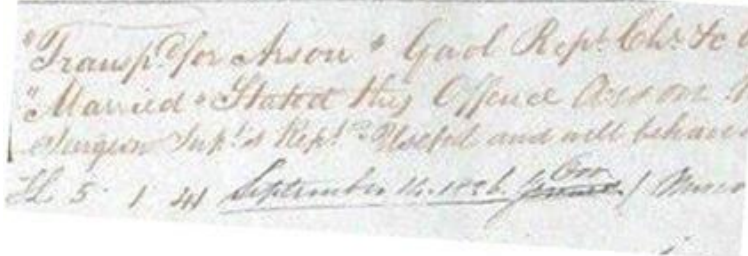 "Transp.d for Arson " Gaol Rept. Chr. &c
"Married " Stated this Offence Arson
Surgeon Supt.s Rept. Useful and well behaved
5 1 41 September 14. 1826.